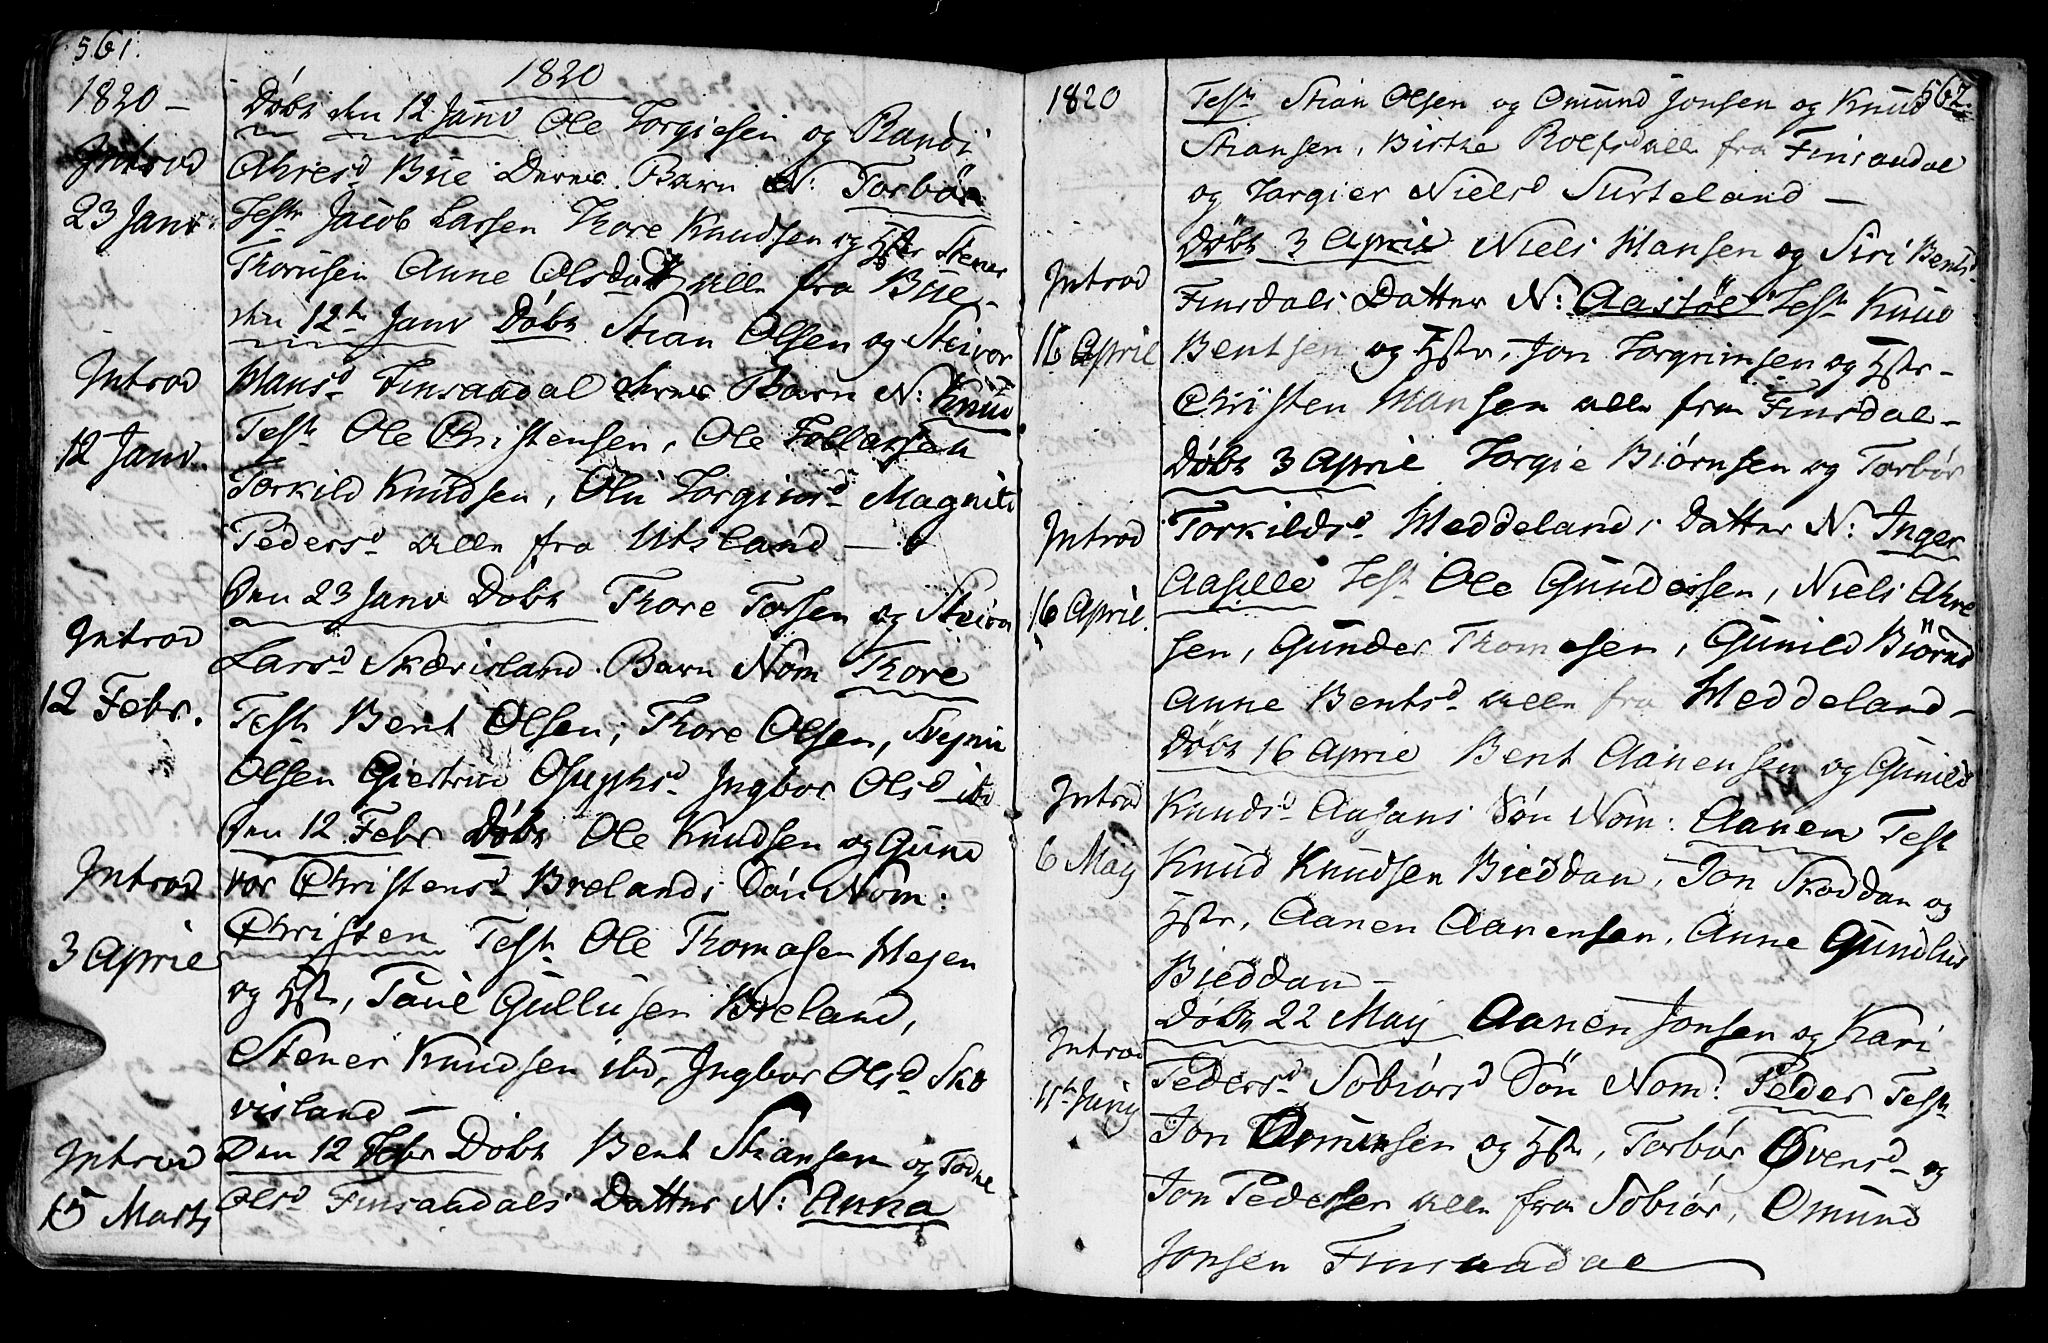 561.
1820 –
1820
Introd
23 Janv.
Introd
12 Janv.
Introd
12 Febr.
Introd
3 April
Introd
15 Marts
Döbt den 12 Janv Ole Torgiesen og Randi
Ahresd Bue Deres Barn N: Torbör
Testr Jacob Larsen Thore Knudsen og Hstr Stener
Thorusen Anne Olsdatt alle fra Bue –
den 12te Janv Döbt Stian Olsen og Steivor
Hansd Finsaadal deres Barn N: Knud
Testr Ole Christensen, Ole Tollefsen
Torkild Knudsen, Oli Torgimsd Magnild
Pedersd alle fra Utsland –
Den 23 Janv Döbt Thore Torsen og Steivor
Larsd Skærisland Barn Nom Thore
Testr Bent Olsen, Thore Olsen,
Olsen Giertrud Jngbor Olsd ibd
Den 12 Febr Döbt Ole Knudsen og Gund
vor Christensd Brelands Sön Nom:
Christen Testr Ole Thomasen Hegen
og Hstr, Tarie Gullusen Breland,
Stener Knudsen ibd, Jngbor Olsd Skæ
risland –
Den 12 Febr Döbt Bent Stiansen og Todne
Olsd Finsaadals Datter N: Anna
562.
1820
Introd
16 April
Introd
16 April.
Introd
6 May
Introd
11te Juny
Testr Stian Olsen og Omund Jonsen og Knud
Stiansen, Birthe Rolfsd alle fra Finsaadal
og Torgier Nielsd Surteland –
Döbt 3 April Niels Hansen og Siri Bentsd
Finsdals Datter N: Aastöe Testr Knud
Bentsen og Hstr, Jon Torgrimsen og Hstr –
Christen Hansen alle fra Finsdal –
Döbt 3 April Torgie Biörnsen og Torbör
Torkildsd Heddelands Datter N: Inger
Aasille Testr Ole Gundersen, Niels Ahre
sen, Gunder Thomesen, Gunild Biörnsd
Anne Bentsd alle fra Heddeland –
Döbt 16 April Bent Aanensen og Gunild
Knudsd Aagans Sön Nom: Aanen Testr
Knud Knudsen Bieddan, Jon Skoddan og
Hstr, Aanen Aanensen, Anne Gundlusd
Bieddan –
Döbt 22 May Aanen Jonsen og Kari
Pedersd Sobiörsd Sön Nom: Peder Testr
Jon Omunsen og Hstr, Torbör Øvensd og
Jon Pedersen alle fra Sobiör, Omund
Jonsen Finsaadal